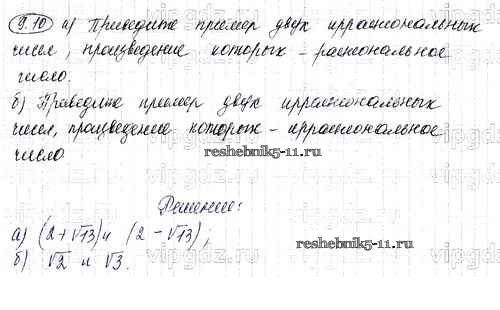 9.10 а) Приведите пример двух иррациональных
чисел, произведение которых – рациональное
число.
б) Приведите пример двух иррациональных
чисел, произведение которых – иррациональное
число
reshebnik5-11.ru
Решение:
а) (2+√13) и (2-√13);
б) √2 и √3.
reshebnik5-11.ru
vipgdz.ru